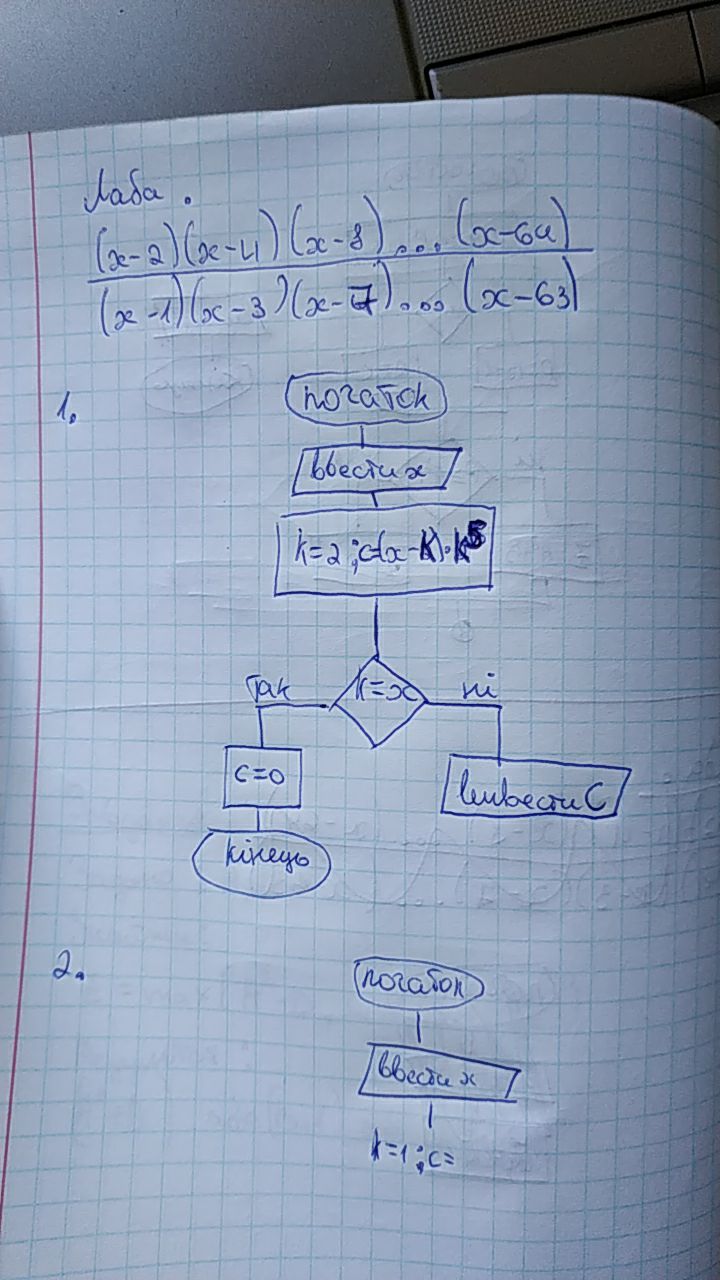 Лаба.
(x-2)(x-4)(x-8)...(x-64)
(x-1)(x-3)(x-7)...(x-63)
1.
початок
ввести x
k=2;c=(x-k)·k⁵
k=x
так
ні
c=0
вивести C
кінець
2.
початок
ввести x
k=1;c=